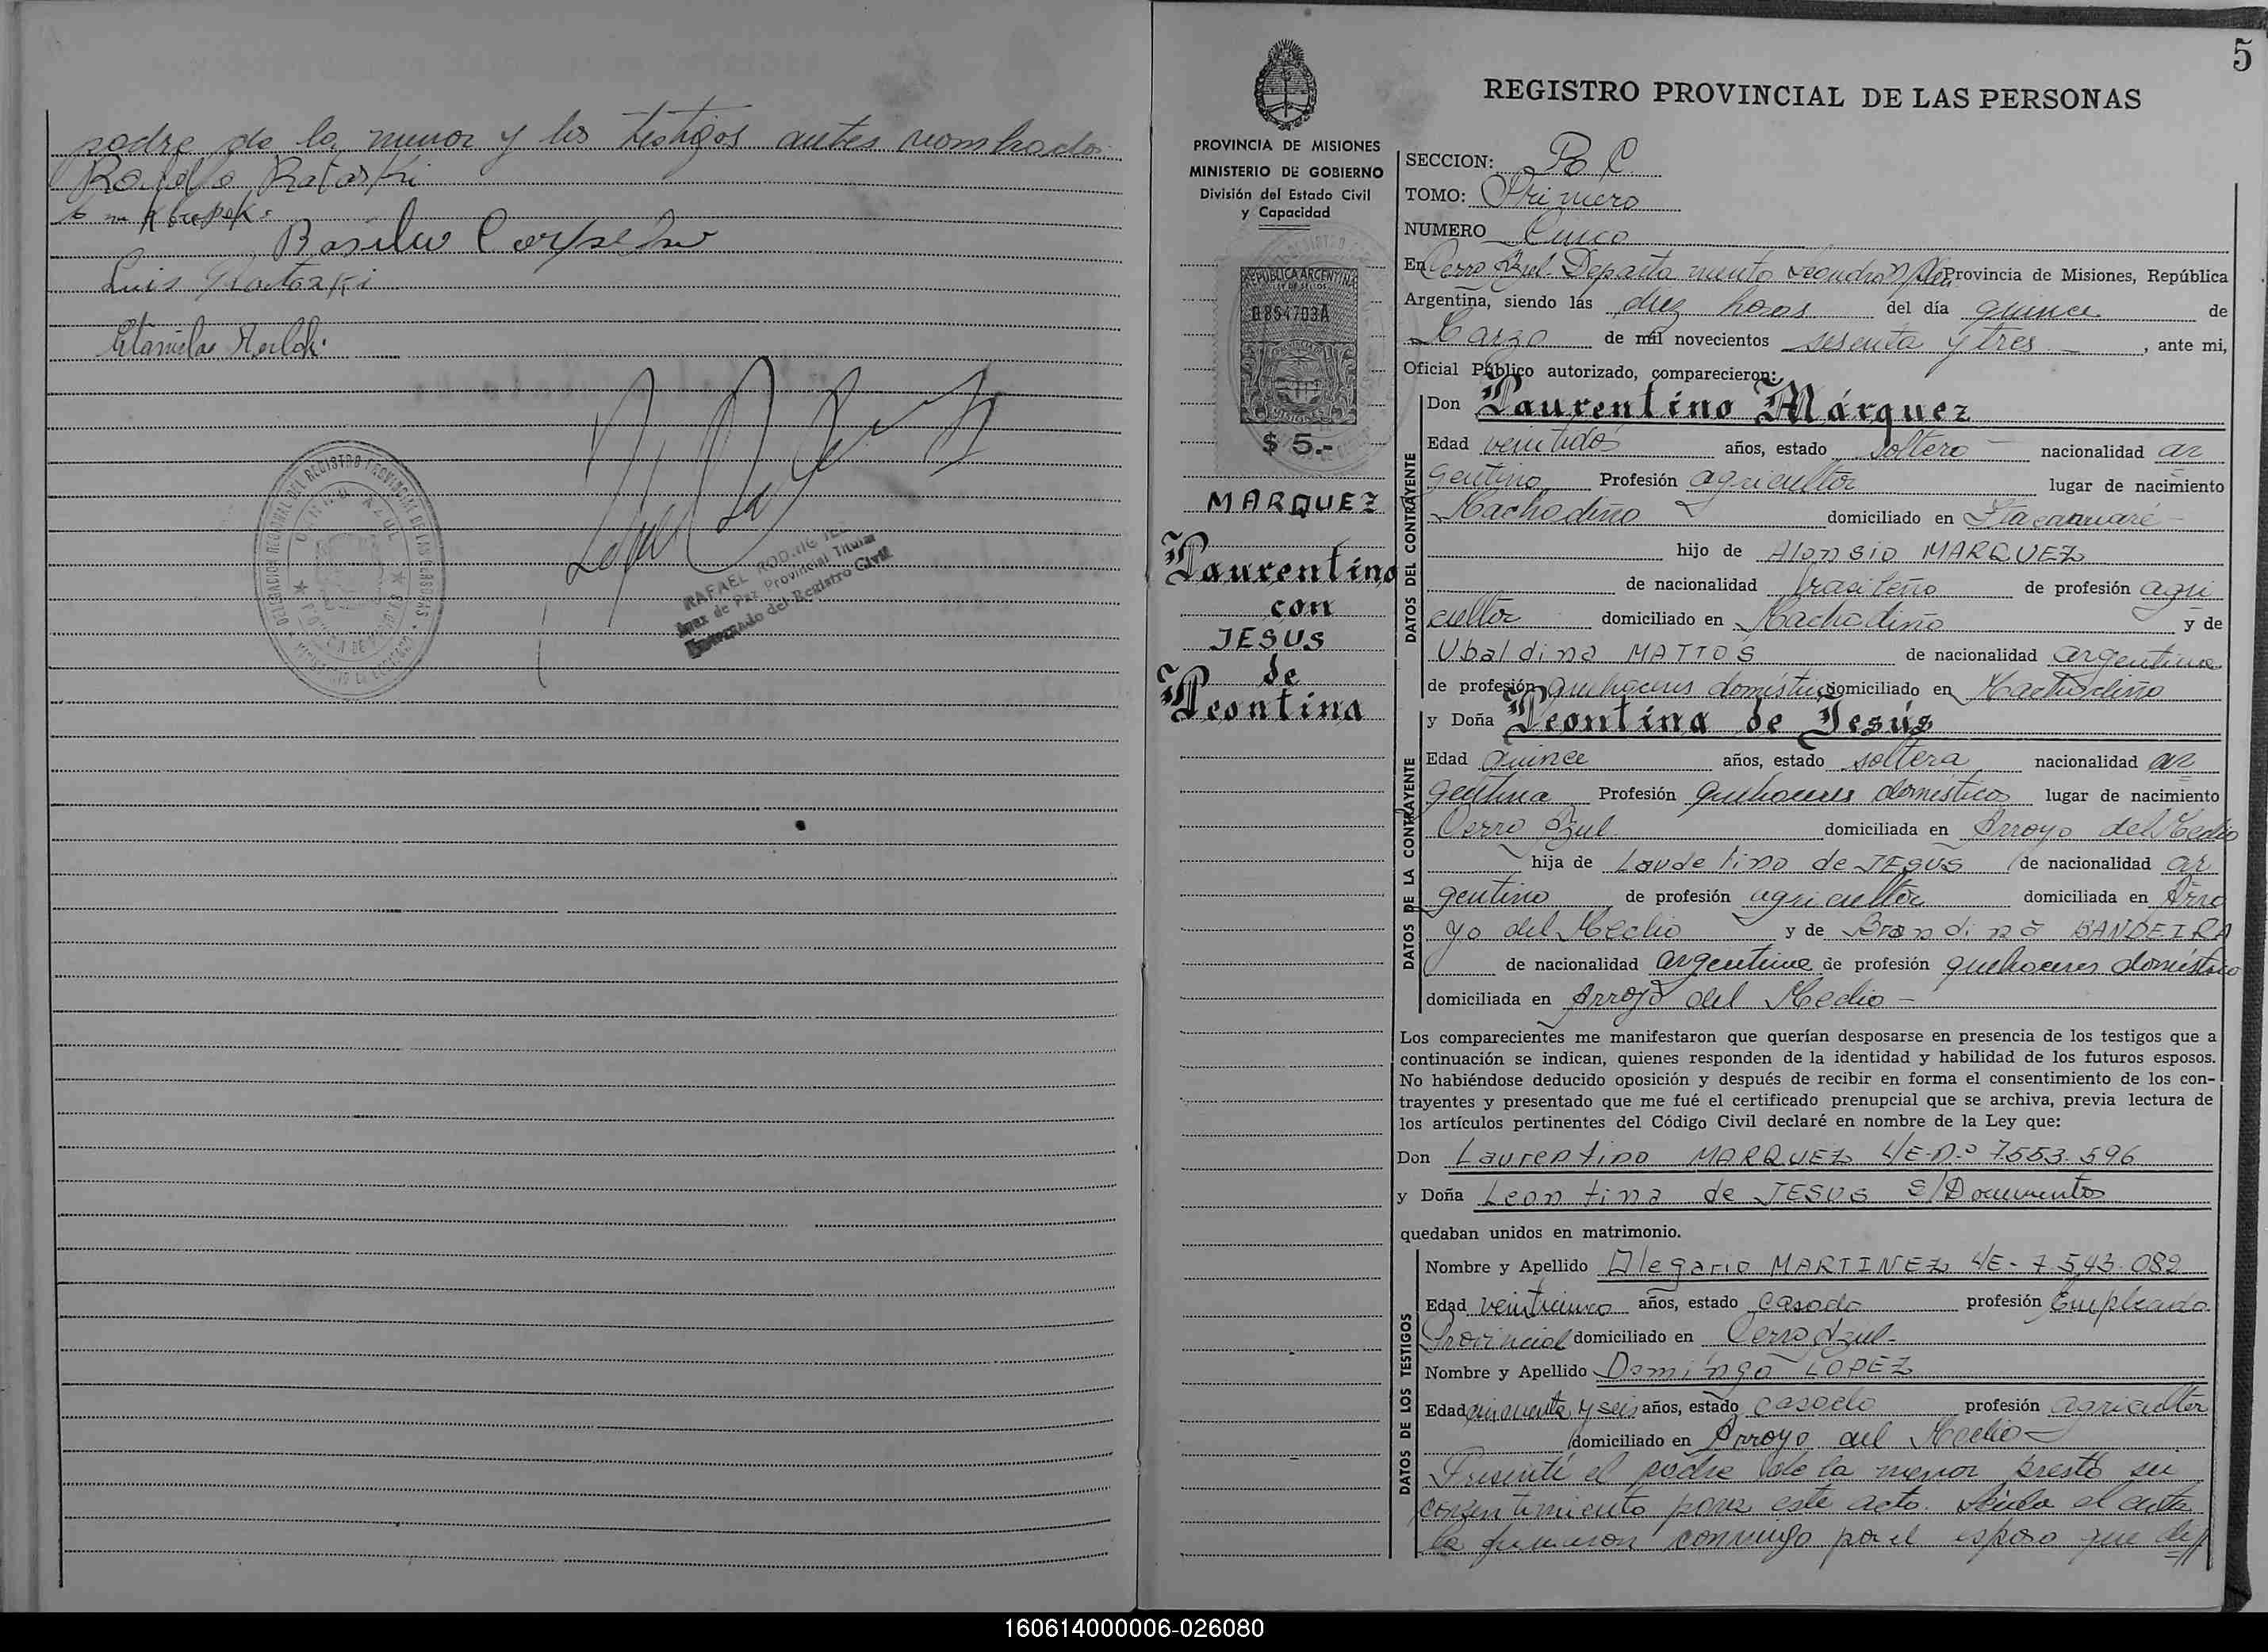 padre de la menor y los testigos antes nombrados.
Basilio
Luis Ratazki
DELEGACION REGIONAL DEL REGISTRO PROVINCIAL DE LAS PERSONAS
CERRO AZUL
RAFAEL
Juez de Paz Provincial Titular
Encargado del Registro Civil
5
REGISTRO PROVINCIAL DE LAS PERSONAS
PROVINCIA DE MISIONES
MINISTERIO DE GOBIERNO
División del Estado Civil
y Capacidad
REPUBLICA ARGENTINA
LEY DE SELLOS
0854703A
MISIONES
$ 5.-
MARQUEZ
Laurentino
con
JESUS
de
Leontina
SECCION:
TOMO: Primero
NUMERO Cinco
En Cerro Azul Departamento Leandro N. Alem Provincia de Misiones, República
Argentina, siendo las diez horas del día quince de
Marzo de mil novecientos sesenta y tres, ante mi,
Oficial Público autorizado, comparecieron:
DATOS DEL CONTRAYENTE
Don Laurentino Márquez
Edad veintidos años, estado soltero nacionalidad ar
gentino Profesión agricultor lugar de nacimiento
Machadiño domiciliado en Itacaruaré
hijo de Alonsio MARQUEZ
de nacionalidad brasileño de profesión agri
cultor domiciliado en Machadiño y de
Ubaldina MATTOS de nacionalidad argentina
de profesión quehaceres domésticos domiciliado en Machadiño
DATOS DE LA CONTRAYENTE
y Doña Leontina de Jesús
Edad quince años, estado soltera nacionalidad ar
gentina Profesión quehaceres domésticos lugar de nacimiento
Cerro Azul domiciliada en Arroyo del Medio
hija de Laudetino de JESUS de nacionalidad ar
gentino de profesión agricultor domiciliada en Arro
yo del Medio y de Brandina BANDEIRA
de nacionalidad argentina de profesión quehaceres doméstico
domiciliada en Arroyo del Medio
Los comparecientes me manifestaron que querían desposarse en presencia de los testigos que a
continuación se indican, quienes responden de la identidad y habilidad de los futuros esposos.
No habiéndose deducido oposición y después de recibir en forma el consentimiento de los con-
trayentes y presentado que me fué el certificado prenupcial que se archiva, previa lectura de
los artículos pertinentes del Código Civil declaré en nombre de la Ley que:
Don Laurentino MARQUEZ L/E-N.º 7.553.596
y Doña Leontina de JESUS S/Documentos
quedaban unidos en matrimonio.
DATOS DE LOS TESTIGOS
Nombre y Apellido Olegario MARTINEZ L/E- 7.543.082
Edad veinticinco años, estado casado profesión Empleado
Provincial domiciliado en Cerro Azul.
Nombre y Apellido Domingo LOPEZ
Edad cincuenta y seis años, estado casado profesión agricultor
domiciliado en Arroyo del Medio
Presente el padre de la menor prestó su
consentimiento para este acto. Leída el acta
la firmaron conmigo por el esposo que
160614000006-026080